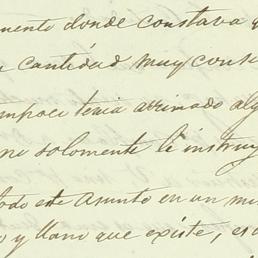 mento donde constava q
a cantidad muy cons
mpoco tenia arrimado alg
no solomente le instruy
todo este Asunto en un mi
o y llano que existe, es